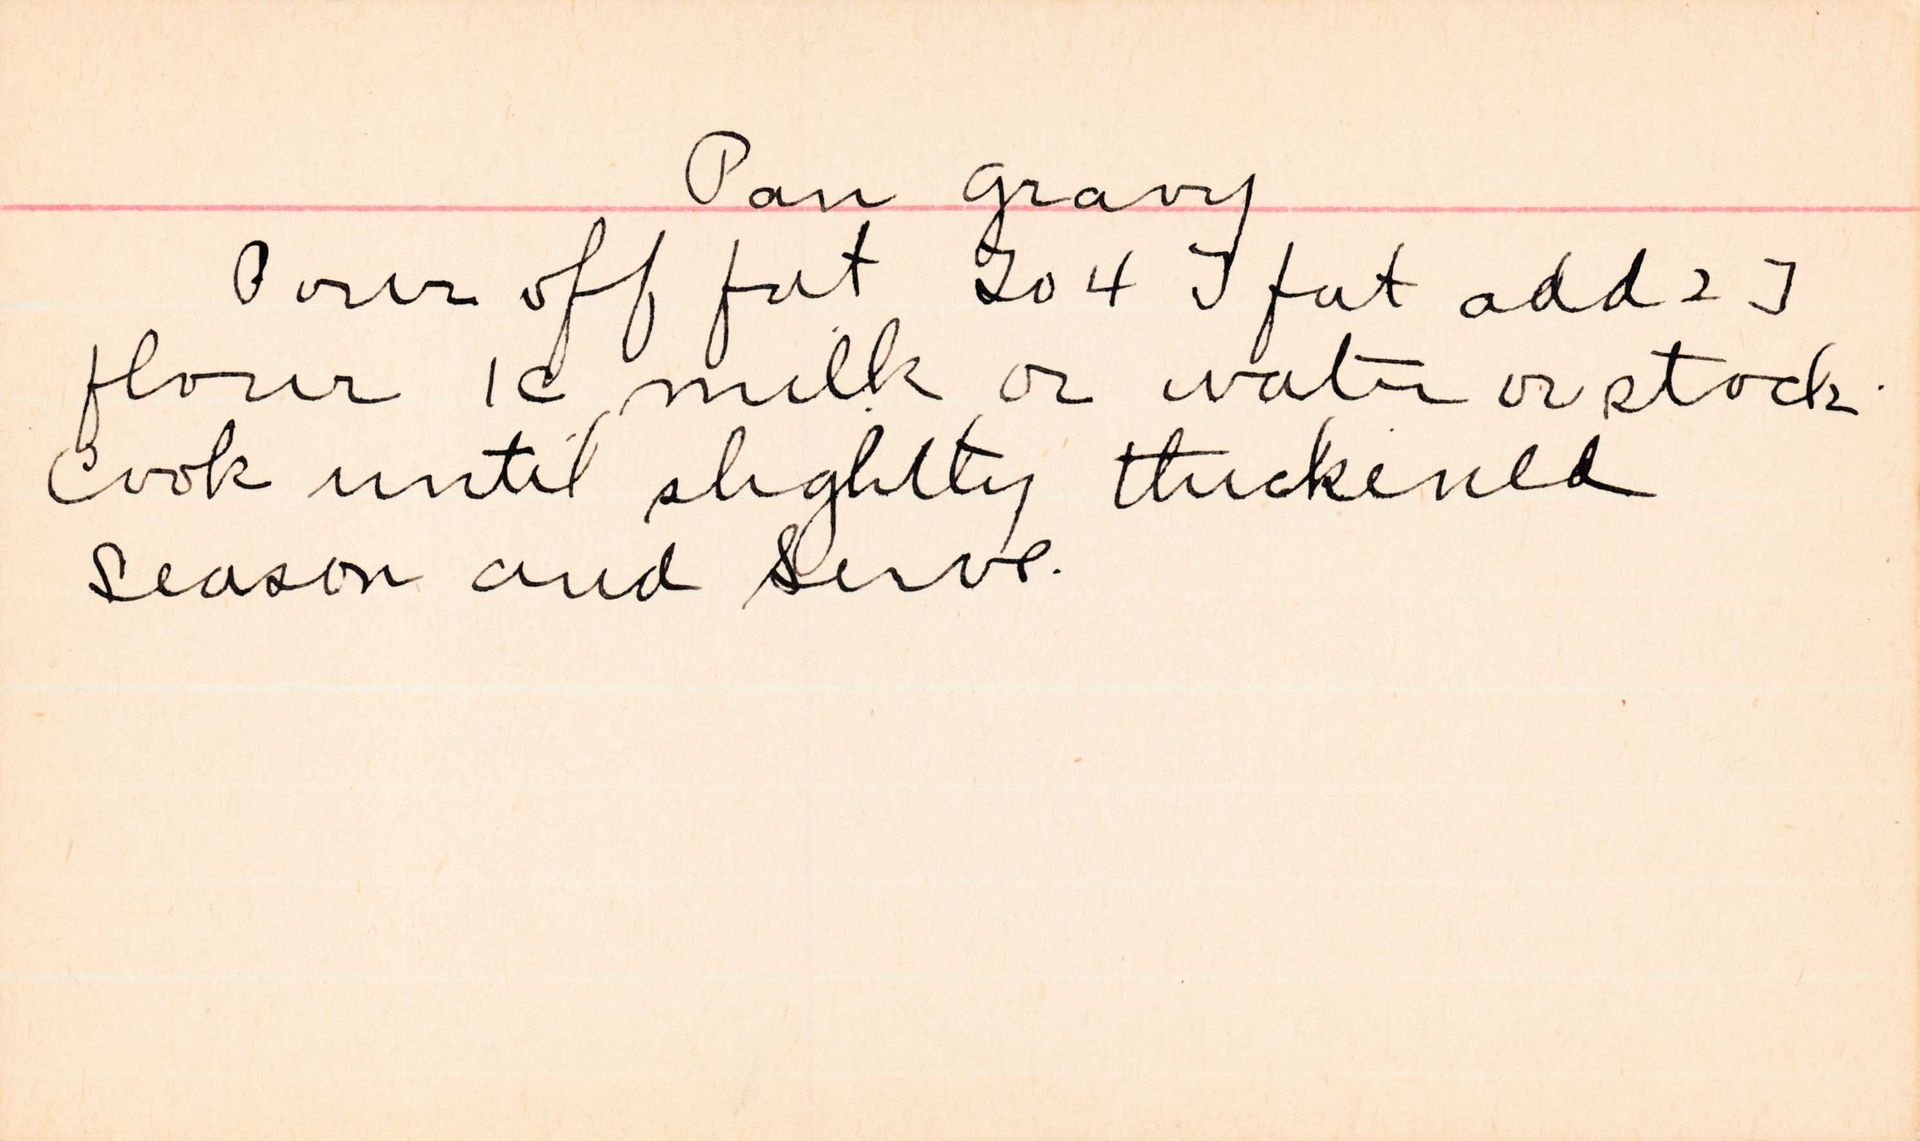 Pan Gravy
Pour off fat To 4 T fat add 2 T
flour 1c milk or water or stock.
Cook until slightly thickened
Season and Serve.